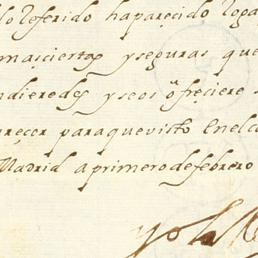 lo referido ha parecido
mas ciertas y seguras que
ndieredes y se os ofreciere
parecer para que visto en el co
Madrid a primero de febrero
yo la R